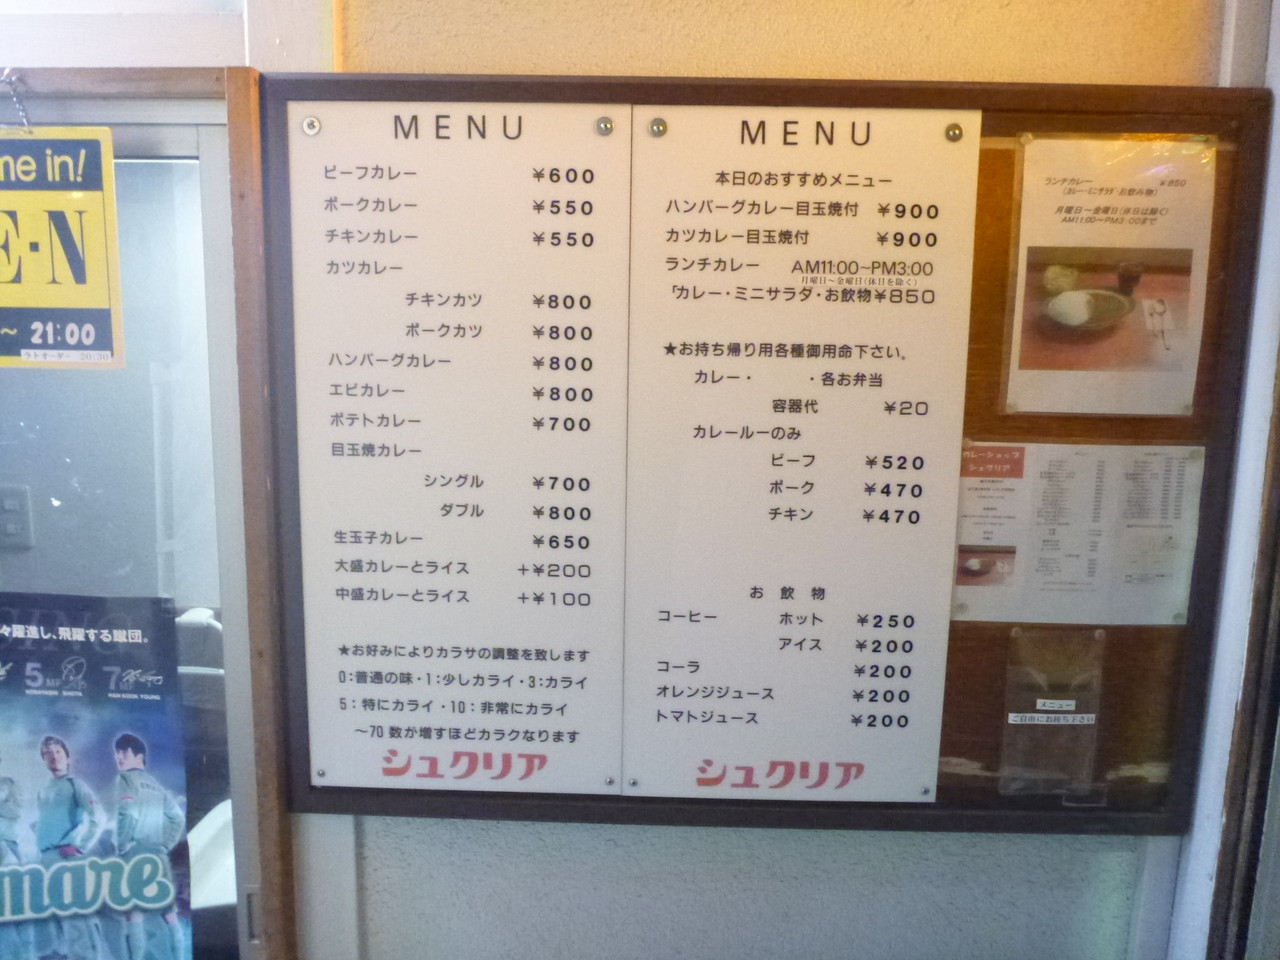 me in!
E·N
～ 21:00
ラトオーダー 20:30
々躍進し、飛躍する蹴団。
5
7
mare
MENU
ビーフカレー ¥600
ポークカレー ¥550
チキンカレー ¥550
カツカレー
チキンカツ ¥800
ポークカツ ¥800
ハンバーグカレー ¥800
エビカレー ¥800
ポテトカレー ¥700
目玉焼カレー
シングル ¥700
ダブル ¥800
生玉子カレー ¥650
大盛カレーとライス +¥200
中盛カレーとライス +¥100
★お好みによりカラサの調整を致します
0:普通の味・1:少しカライ・3:カライ
5:特にカライ・10:非常にカライ
～70 数が増すほどカラクなります
シュクリア
MENU
本日のおすすめメニュー
ハンバーグカレー目玉焼付 ¥900
カツカレー目玉焼付 ¥900
ランチカレー AM11:00~PM3:00
月曜日～金曜日(休日を除く)
「カレー・ミニサラダ・お飲物¥850
★お持ち帰り用各種御用命下さい。
カレー・ ・各お弁当
容器代 ¥20
カレールーのみ
ビーフ ¥520
ポーク ¥470
チキン ¥470
お飲物
コーヒー ホット ¥250
アイス ¥200
コーラ ¥200
オレンジジュース ¥200
トマトジュース ¥200
シュクリア
ランチカレー ¥850
(カレー・ミニサラダ・お飲み物)
月曜日～金曜日(休日は除く)
AM11:00～PM3:00まで
カレーショップ
シュクリア
メニュー
ご自由にお持ち下さい